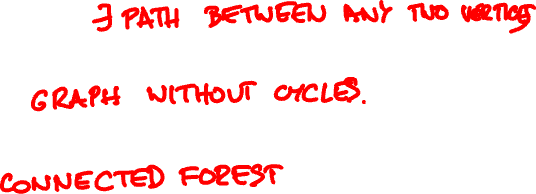 ∃ PATH BETWEEN ANY TWO VERTICES
GRAPH WITHOUT CYCLES.
CONNECTED FOREST